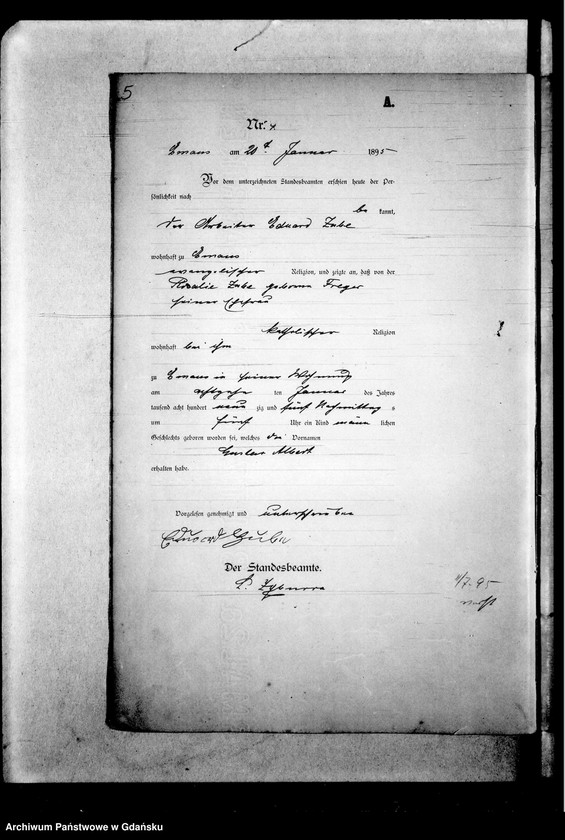 5
A.
Nr. 4
Emaus am 21t Januar 1895
Vor dem unterzeichneten Standesbeamten erschien heute der Per-
sönlichkeit nach
be kannt,
der Arbeiter Eduard Zube
wohnhaft zu Emaus
evangelischer Religion, und zeigte an, daß von der
Rosalie Zube geborene Treger
seiner Ehefrau
katholischer Religion
wohnhaft bei ihm
zu Emaus in seiner Wohnung
am achtzehn ten Januar des Jahres
tausend acht hundert neun zig und fünf Nachmittag s
um fünf Uhr ein Kind männ lichen
Geschlechts geboren worden sei, welches die Vornamen
Gustav Albert
erhalten habe.
Vorgelesen, genehmigt und unterschrieben
Eduard Zube
Der Standesbeamte.
7/7. 95
Archiwum Państwowe w Gdańsku